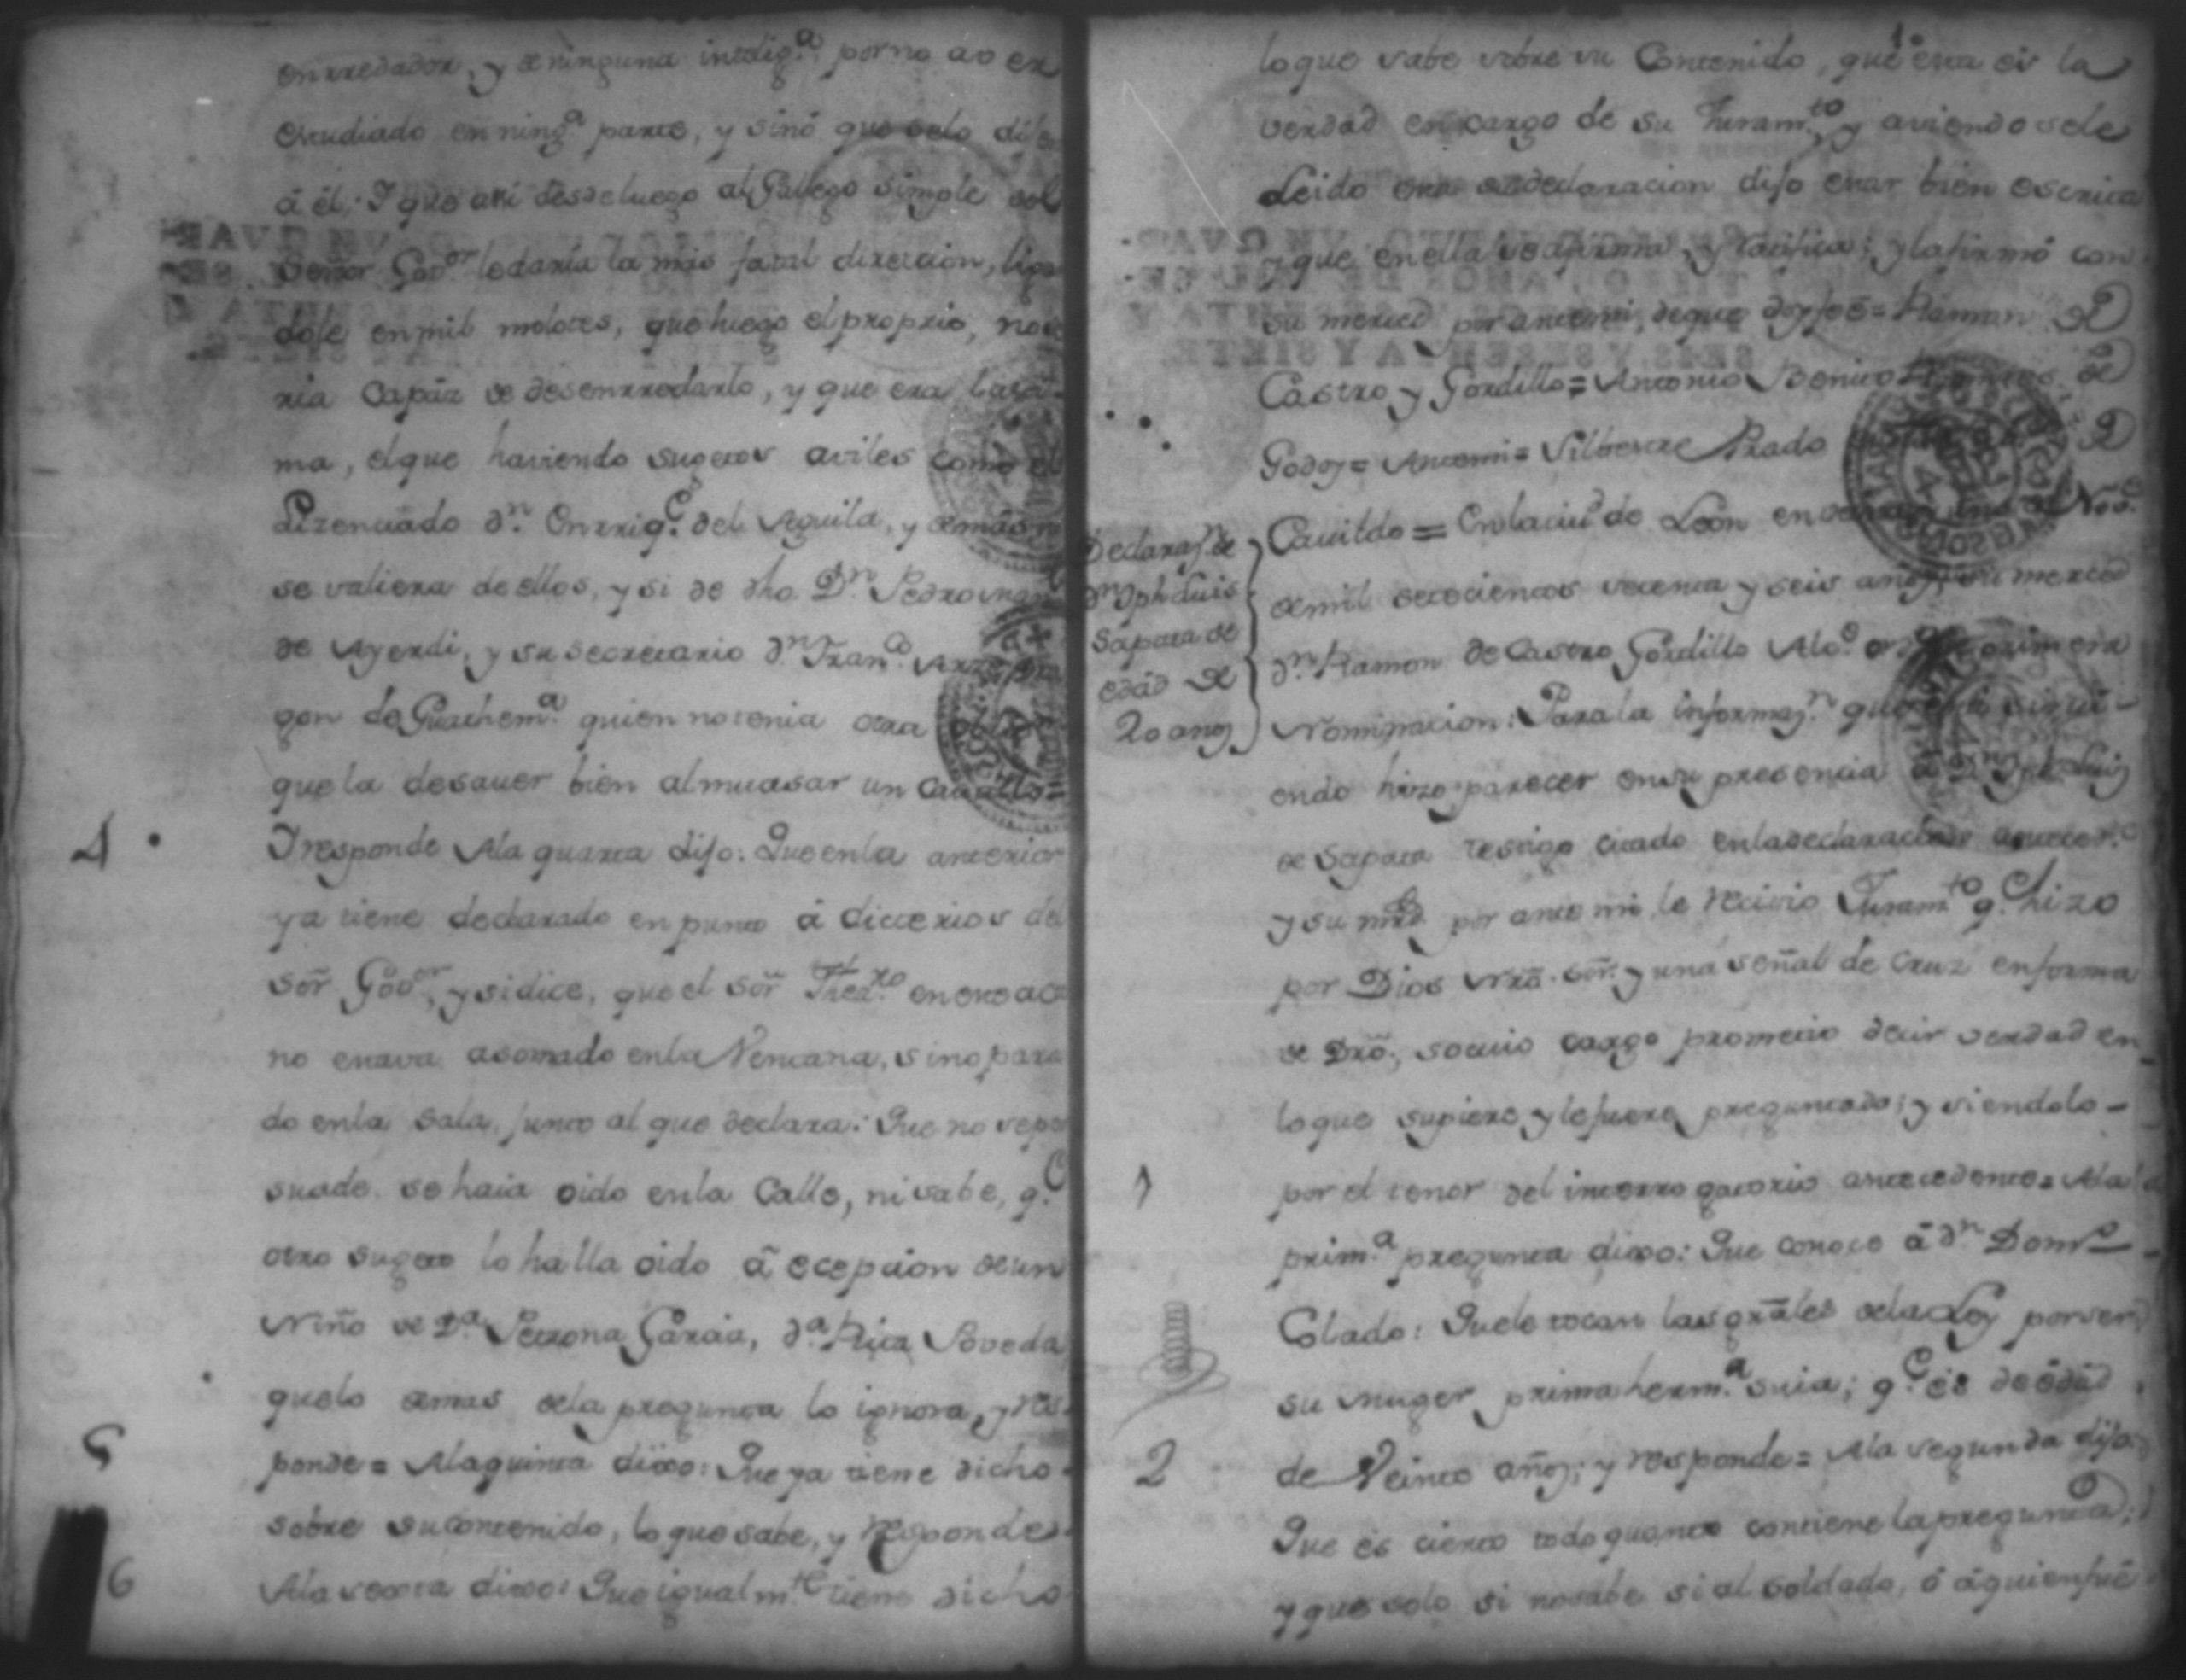 enrredador, y de ninguna intelig.ª por no aver
estudiado en ning.ª parte, y sinó que velo
á él. I que asi desde luego al Gallego simple del
Señor Gov.or le daria la más fatal direccion,
dole en mil molotes, que luego el proprio, no se
ria capáz de desenrredarlo, y que era lasti-
ma, el que haviendo sugetos aviles como el
Lizenciado d.n Enrriq.e del Aguila, y demás
se valiera de ellos, y si de dho. D.n Pedro
de Ayerdi, y su secretario d.n Fran.co
gon de Guathem.ª quien no tenia otra
que la desaver bien almuasar un Cavallo=
4 I responde Ala quarta dijo: Que en la anterior
ya tiene declarado en punto á dicterios del
Sor̃ Gov.or, y si dice, que el Sor̃ Thez.ro en ese acto
no estava asomado en la Ventana, sino para
do en la sala junto al que declara: Que no sepe
suade se haia oido en la Calle, ni sabe, q.e
otro sugeto lo halla oido á ecepcion de un
Niño de D.ª Petrona Garcia, d.ª Rita Poveda
que lo demas dela pregunta lo ignora, y res-
5 ponde= Ala quinta dixo: Que ya tiene dicho
sobre su contenido, lo que sabe, y responde=
6 Ala sexta dixo: Que igual m.te tiene dicho
lo que sabe sobre su Contenido, que esta es la
verdad en cargo de su Juram.to y aviendosele
Leido esta su declaracion dijo estar bien escrita
y que en ella se afirma, y ratifica: y la firmó con
su merced por ante mi, de que doy feé= Ramon de
Castro y Gordillo= Antonio Benito de
Godoy= Ante mi= Silbestre Prado
Declaraz.n de
d.n Jph Luis
Sapata de
edád de
20 años
Cavildo= En la ciu.d de León en de Nov.e
de mil setecientos setenta y seis años, su merced
d.n Ramon de Castro Gordillo Alc.e primera
Nominacion: Para la informaz.n que
endo hizo parecer en su presencia á d.n Jph Luis
de Sapata testigo citado en la declaracion
y su mrd. por ante mi le recivio Juram.to q.e hizo
por Dios nrõ. Sor̃. y una señal de Cruz en forma
de Drõ., so cuio cargo prometio decir verdad en
lo que supiere y le fuere preguntado; y siendolo-
1 por el tenor del interrogatorio antecedente= Ala
prim.ª pregunta dixo: Que conoce á d.n Dom.o
Colado: Que le tocan las grãles dela Ley por ser
su muger prima herm.ª suia; q.e és de édád
2 de Veinte años; y responde= Ala segunda dijo
Que és cierto todo quanto contiene la pregunta;
y que solo si no sabe si al soldado, ó á quien fué